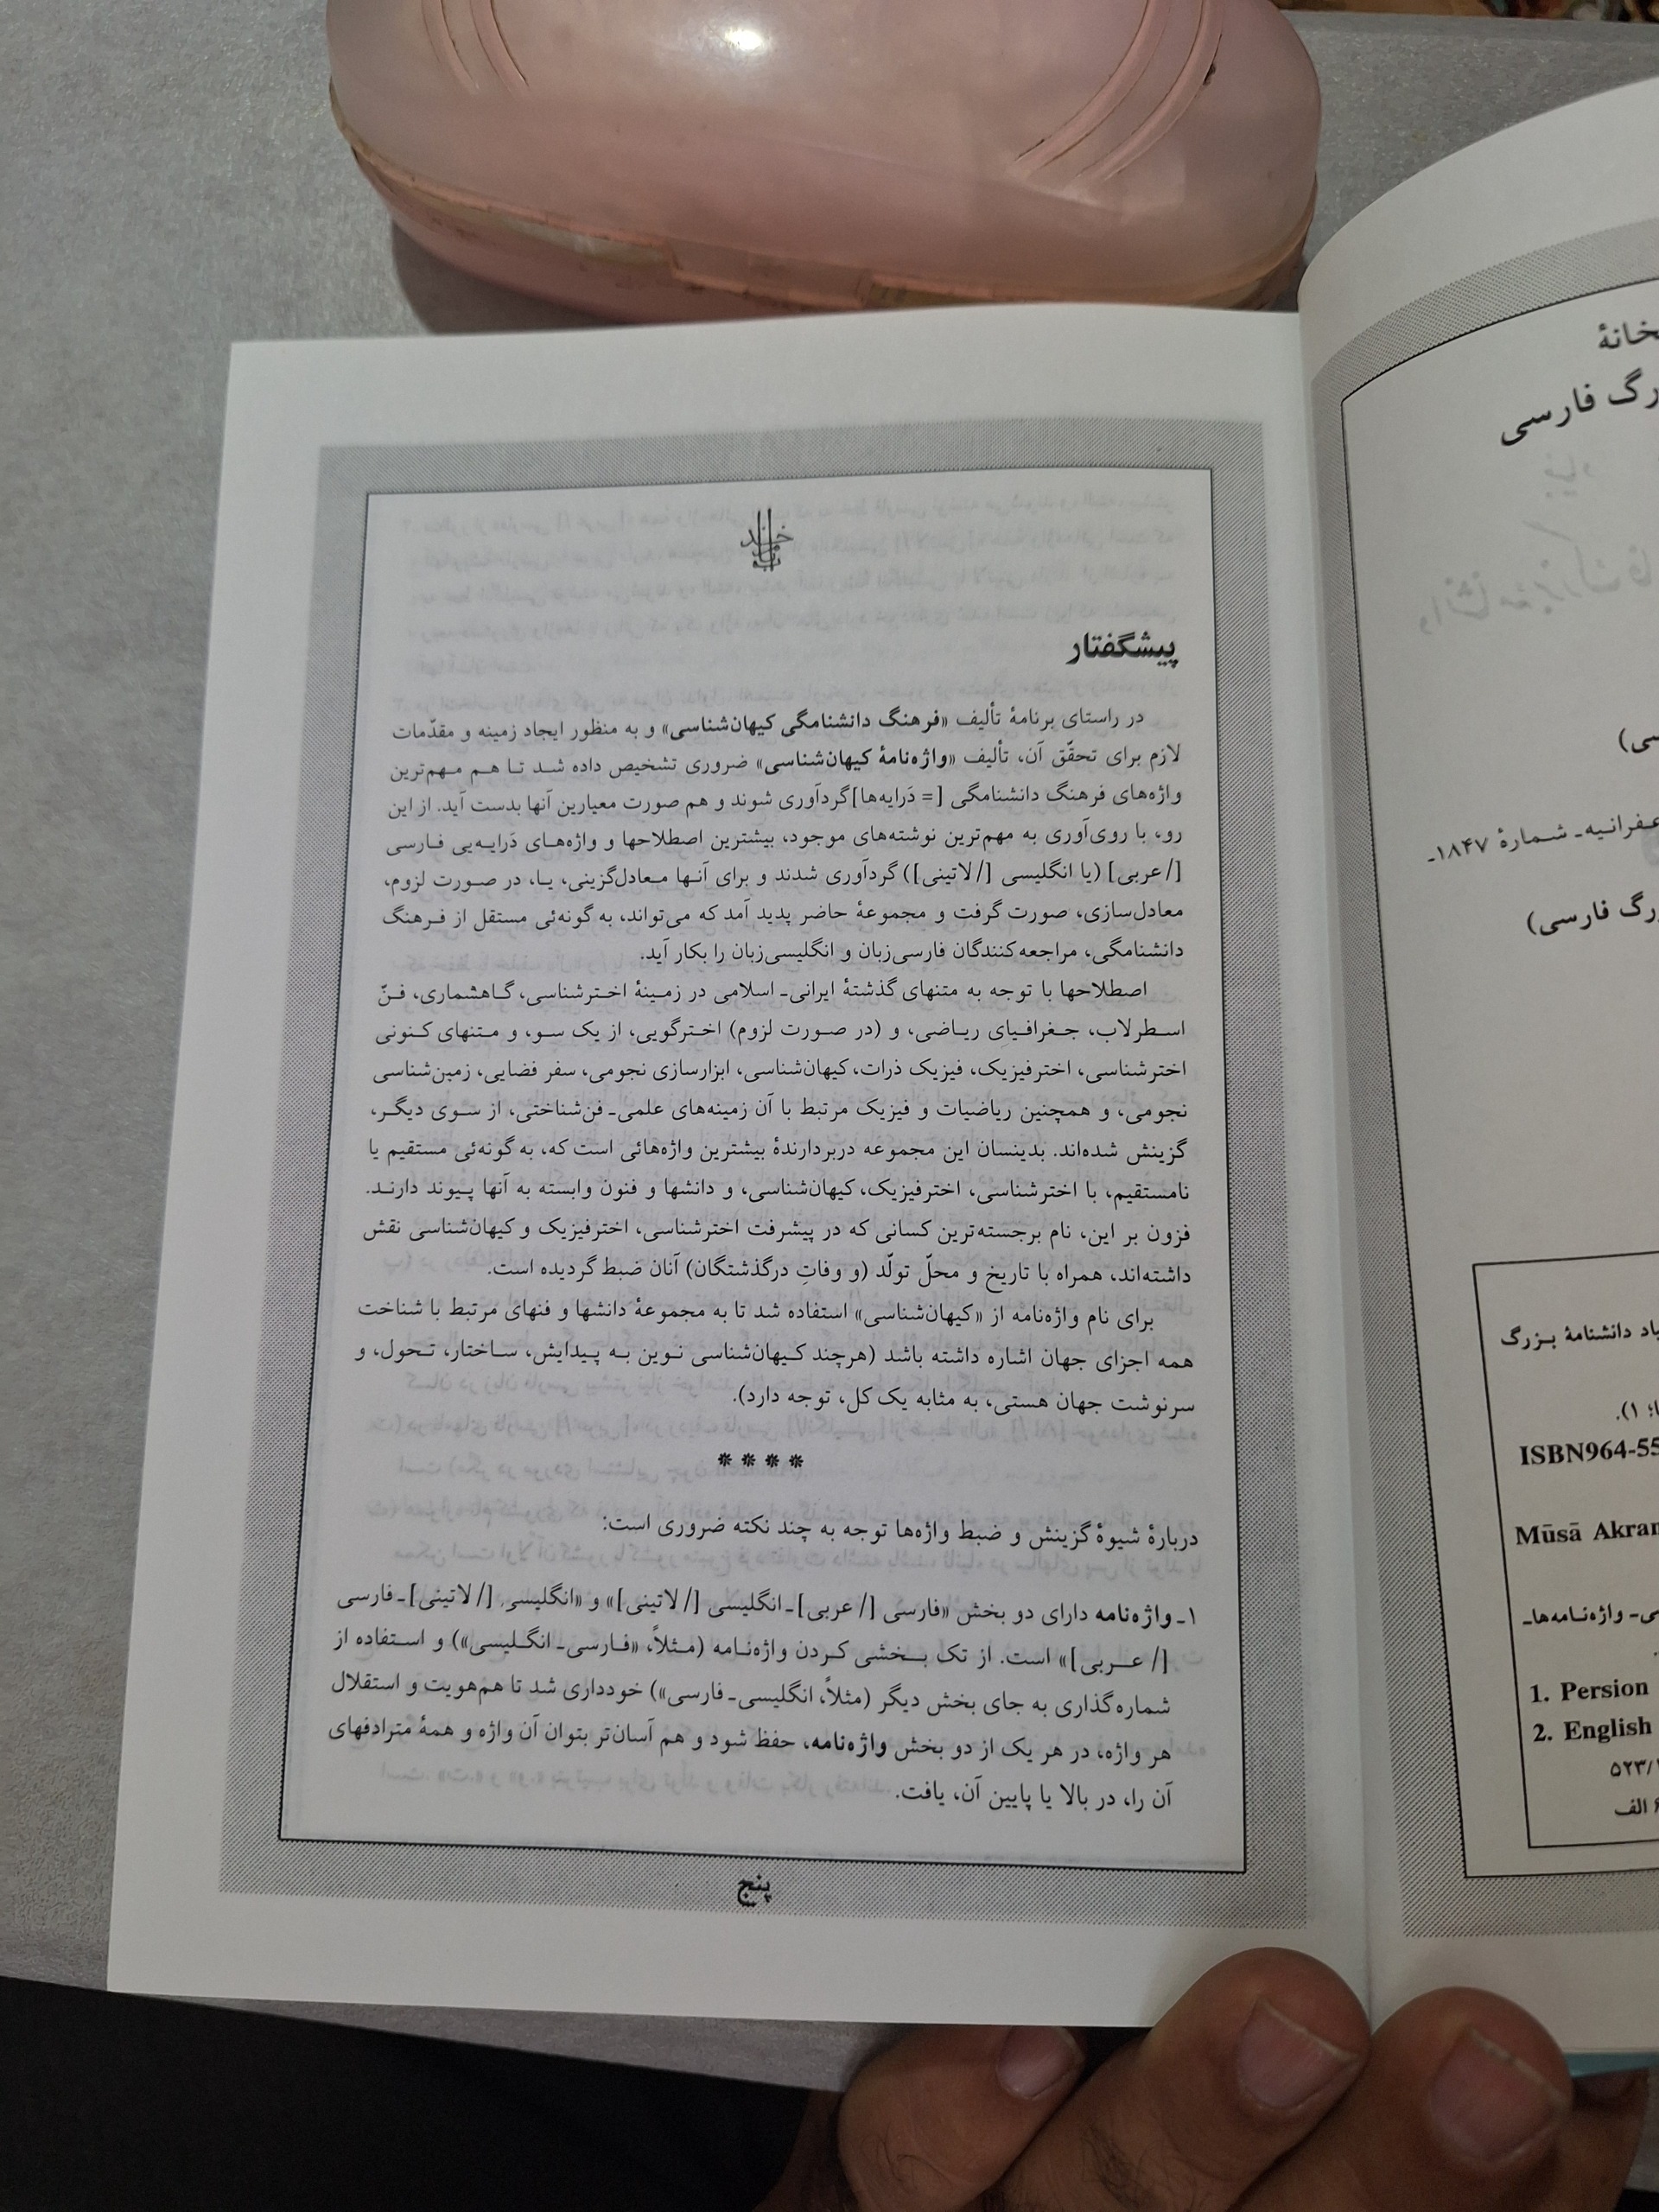 بنام خداوند
پیشگفتار
در راستای برنامهٔ تألیف «فرهنگ دانشنامگی کیهان‌شناسی» و به منظور ایجاد زمینه و مقدّمات
لازم برای تحقّق آن، تألیف «واژه‌نامهٔ کیهان‌شناسی» ضروری تشخیص داده شد تا هم مهم‌ترین
واژه‌های فرهنگ دانشنامگی [= دَرایه‌ها] گردآوری شوند و هم صورت معیارین آنها بدست آید. از این
رو، با روی‌آوری به مهم‌ترین نوشته‌های موجود، بیشترین اصطلاحها و واژه‌های دَرایه‌یی فارسی
[/ عربی] (یا انگلیسی [/ لاتینی]) گردآوری شدند و برای آنها معادل‌گزینی، یا، در صورت لزوم،
معادل‌سازی، صورت گرفت و مجموعهٔ حاضر پدید آمد که می‌تواند، به گونه‌ئی مستقل از فرهنگ
دانشنامگی، مراجعه‌کنندگان فارسی‌زبان و انگلیسی‌زبان را بکار آید.
اصطلاحها با توجه به متنهای گذشتهٔ ایرانی‌ـ اسلامی در زمینهٔ اخترشناسی، گاهشماری، فنّ
اسطرلاب، جغرافیای ریاضی، و (در صورت لزوم) اخترگویی، از یک سو، و متنهای کنونی
اخترشناسی، اخترفیزیک، فیزیک ذرات، کیهان‌شناسی، ابزارسازی نجومی، سفر فضایی، زمین‌شناسی
نجومی، و همچنین ریاضیات و فیزیک مرتبط با آن زمینه‌های علمی‌ـ فن‌شناختی، از سوی دیگر،
گزینش شده‌اند. بدینسان این مجموعه دربردارندهٔ بیشترین واژه‌هائی است که، به گونه‌ئی مستقیم یا
نامستقیم، با اخترشناسی، اخترفیزیک، کیهان‌شناسی، و دانشها و فنون وابسته به آنها پیوند دارند.
فزون بر این، نام برجسته‌ترین کسانی که در پیشرفت اخترشناسی، اخترفیزیک و کیهان‌شناسی نقش
داشته‌اند، همراه با تاریخ و محلّ تولّد (و وفاتِ درگذشتگان) آنان ضبط گردیده است.
برای نام واژه‌نامه از «کیهان‌شناسی» استفاده شد تا به مجموعهٔ دانشها و فنهای مرتبط با شناخت
همه اجزای جهان اشاره داشته باشد (هرچند کیهان‌شناسی نوین به پیدایش، ساختار، تحول، و
سرنوشت جهان هستی، به مثابه یک کل، توجه دارد).
****
دربارهٔ شیوهٔ گزینش و ضبط واژه‌ها توجه به چند نکته ضروری است:
۱ـ واژه‌نامه دارای دو بخش «فارسی [/ عربی]ـ انگلیسی [/ لاتینی]» و «انگلیسی [/ لاتینی]ـ فارسی
[/ عربی]» است. از تک بخشی کردن واژه‌نامه (مثلاً، «فارسی‌ـ انگلیسی») و استفاده از
شماره‌گذاری به جای بخش دیگر (مثلاً، انگلیسی‌ـ فارسی») خودداری شد تا هم‌هویت و استقلال
هر واژه، در هر یک از دو بخش واژه‌نامه، حفظ شود و هم آسان‌تر بتوان آن واژه و همهٔ مترادفهای
آن را، در بالا یا پایین آن، یافت.
پنج
فارسی
عفرانیه‌ـ شمارهٔ ۱۸۴۷ـ
رگ فارسی)
دانشنامهٔ بزرگ
۱).
ISBN964-55
Mūsā Akram
واژه‌نامه‌ها‌ـ
1. Persion
2. English
۵۲۳/
الف